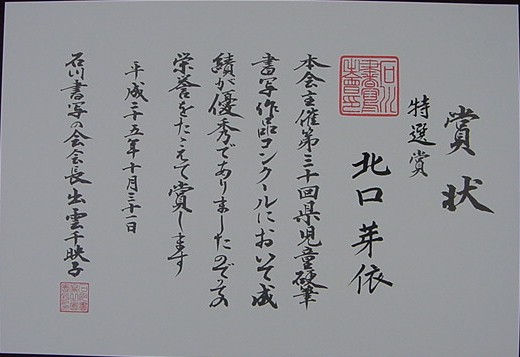 賞状
特選賞
北口芽依
本会主催第三十回県児童硬筆
書写作品コンクールにおいて成
績が優秀でありましたのでその
栄誉をたたえて賞します
平成二十五年十月三十一日
石川書写の会会長出雲千映子